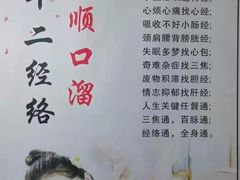 十二经络
顺口溜
心烦心痛找心经;
吸收不好小肠经;
颈肩腰背膀胱经;
失眠多梦找心包;
奇难杂症找三焦;
废物积滞胆经;
情志抑郁找肝经;
人生关键任督通;
三焦通,百脉通;
经络通,全身通。